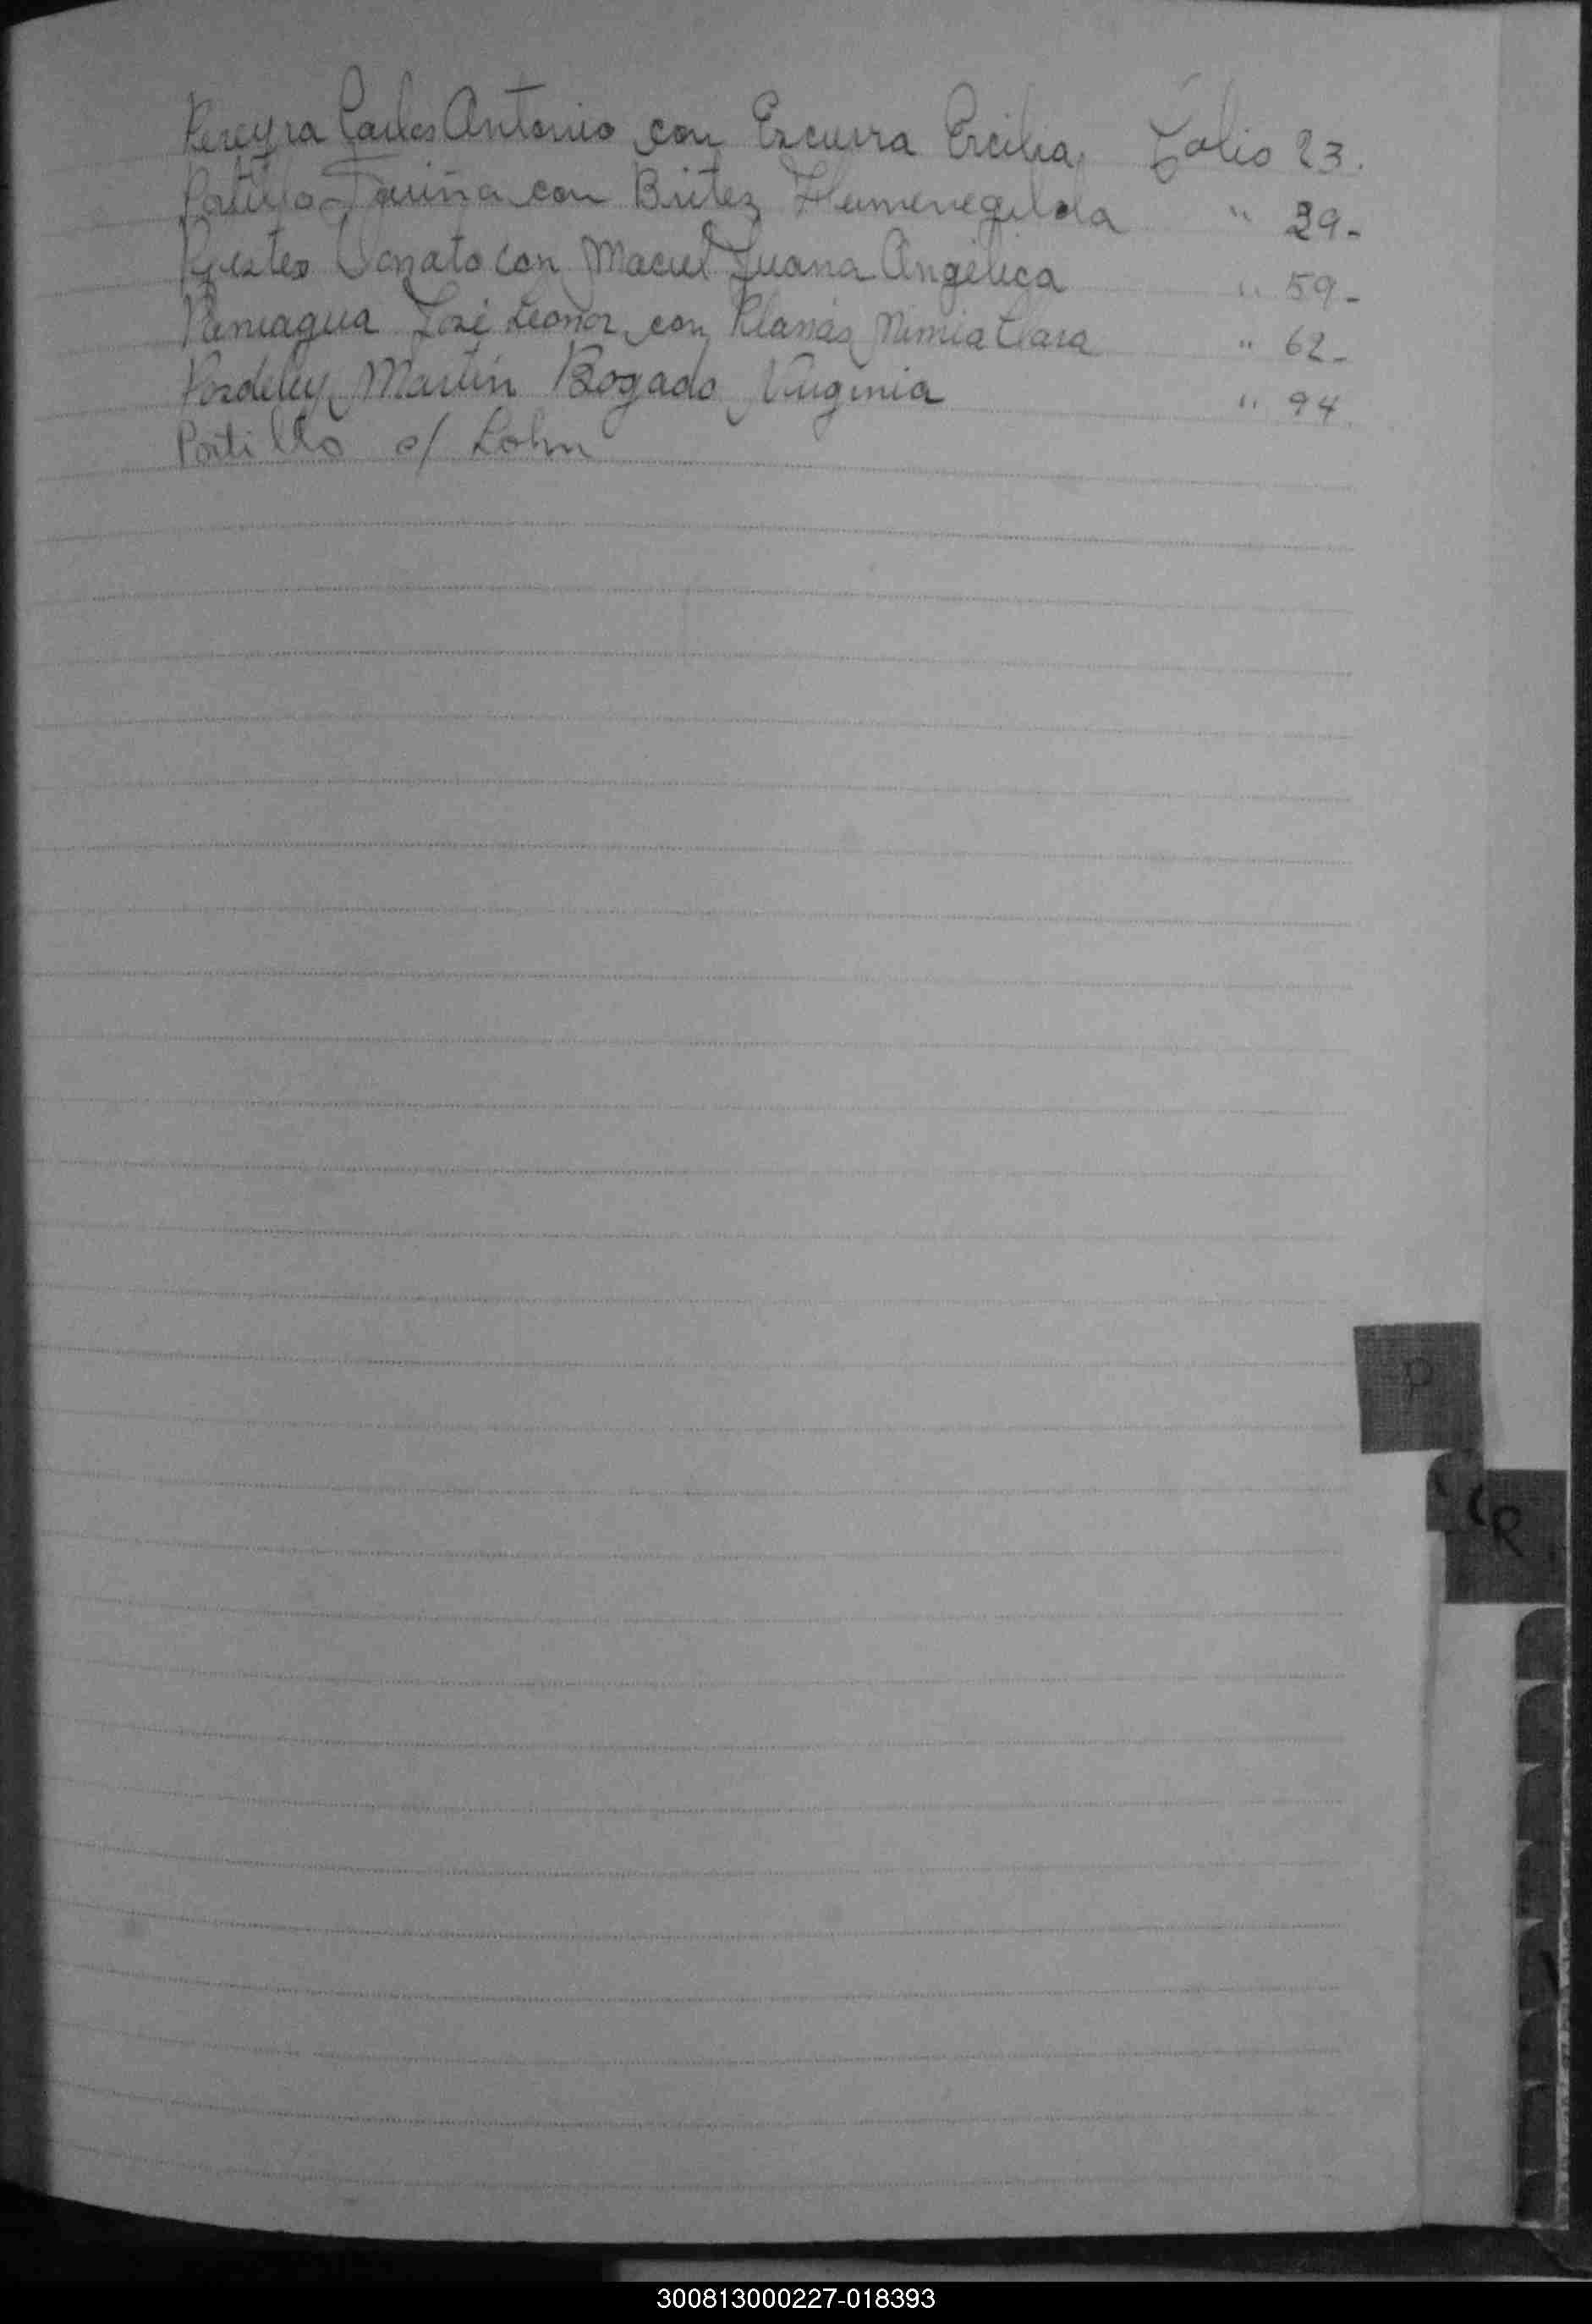 Pereyra Carlos Antonio con Escurra Ercilia, Folio 23.
Portillo Fariña con Britez Hermenegilda " 29-
Donato con Maciel Juana Angélica " 59-
Paniagua José Leonor con Nimia Clara " 62-
Martín Bogado Virginia " 94
Portillo c/ Lohn
P
R
300813000227-018393